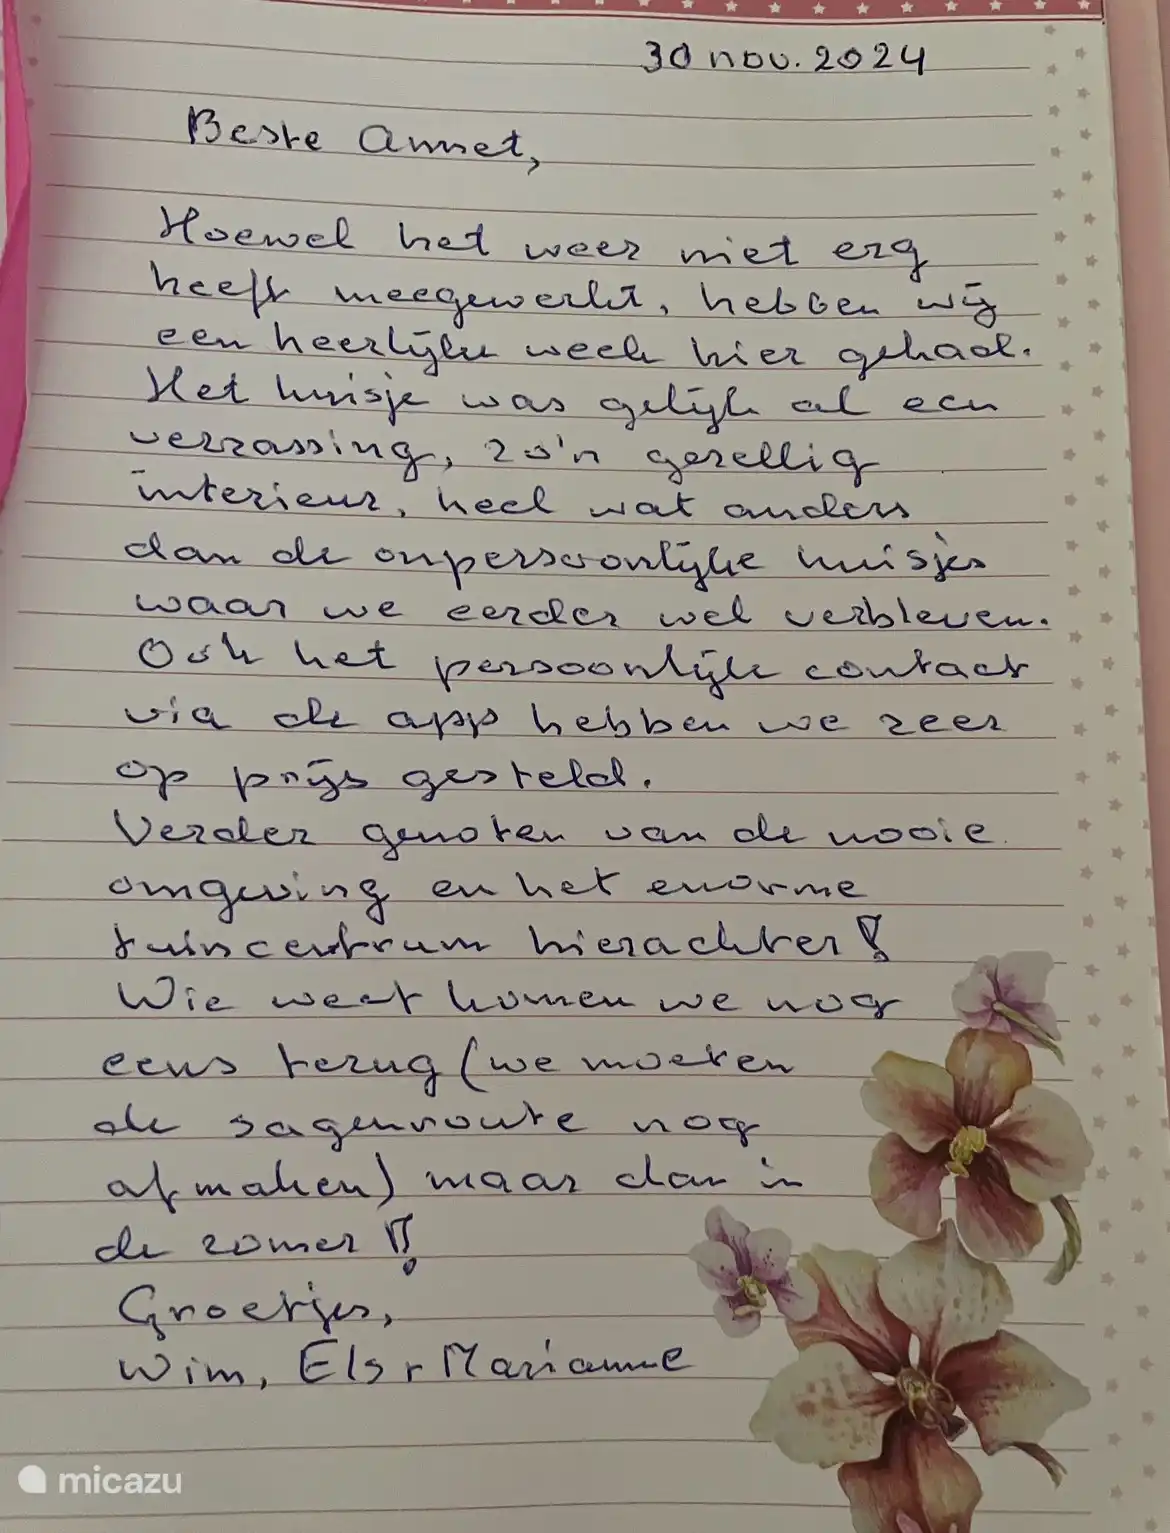 30 nov. 2024
Beste Annet,
Hoewel het weer niet erg
heeft meegewerkt, hebben wij
een heerlijke week hier gehad.
Het huisje was gelijk al een
verrassing, zo'n gezellig
interieur, heel wat anders
dan de onpersoonlijke huisjes
waar we eerder wel verbleven.
Ook het persoonlijk contact
via de app hebben we zeer
op prijs gesteld.
Verder genoten van de mooie
omgeving en het enorme
tuincentrum hierachter!
Wie weet komen we nog
eens terug (we moeten
de sagenroute nog
afmaken) maar dan in
de zomer!!
Groetjes,
Wim, Els + Marianne
micazu